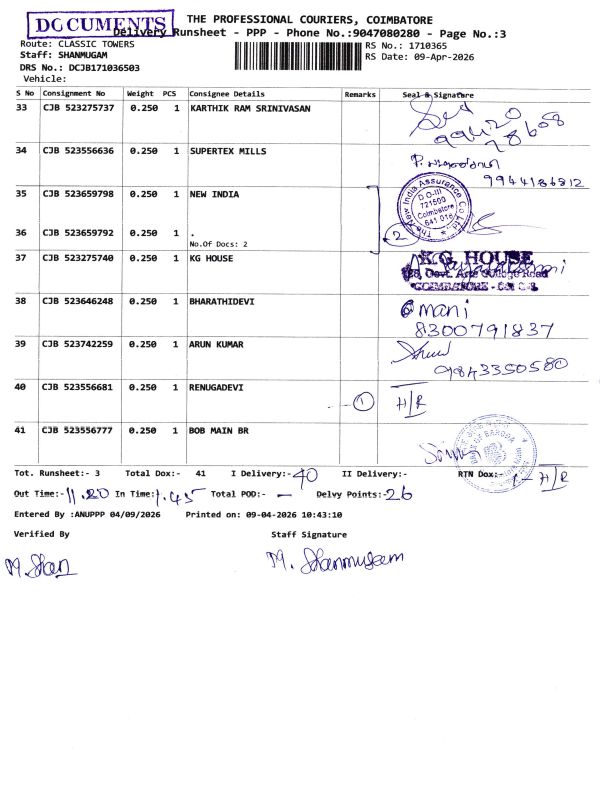 DOCUMENTS
THE PROFESSIONAL COURIERS, COIMBATORE
Delivery Runsheet - PPP - Phone No.:9047080280 - Page No.:3
Route: CLASSIC TOWERS
RS No.: 1710365
Staff: SHANMUGAM
RS Date: 09-Apr-2026
DRS No.: DCJB171036503
Vehicle:
S No Consignment No Weight PCS Consignee Details Remarks Seal & Signature
33 CJB 523275737 0.250 1 KARTHIK RAM SRINIVASAN
34 CJB 523556636 0.250 1 SUPERTEX MILLS
9944186812
35 CJB 523659798 0.250 1 NEW INDIA
The New India Assurance Co. Ltd.
D.O-III
721500
Coimbatore
641 018
36 CJB 523659792 0.250 1 .
2
No.Of Docs: 2
37 CJB 523275740 0.250 1 KG HOUSE
K.G. HOUSE
38 CJB 523646248 0.250 1 BHARATHIDEVI
mani
8300791837
39 CJB 523742259 0.250 1 ARUN KUMAR
9843350580
40 CJB 523556681 0.250 1 RENUGADEVI
1 H/R
41 CJB 523556777 0.250 1 BOB MAIN BR
Tot. Runsheet:- 3 Total Dox:- 41 I Delivery:- 40 II Delivery:- RTN Dox:- 1 - H/R
Out Time:- 11.20 In Time:- 1.45 Total POD:- - Delvy Points:- 26
Entered By :ANUPPP 04/09/2026 Printed on: 09-04-2026 10:43:10
Verified By Staff Signature
M. Shan M. Shanmugam